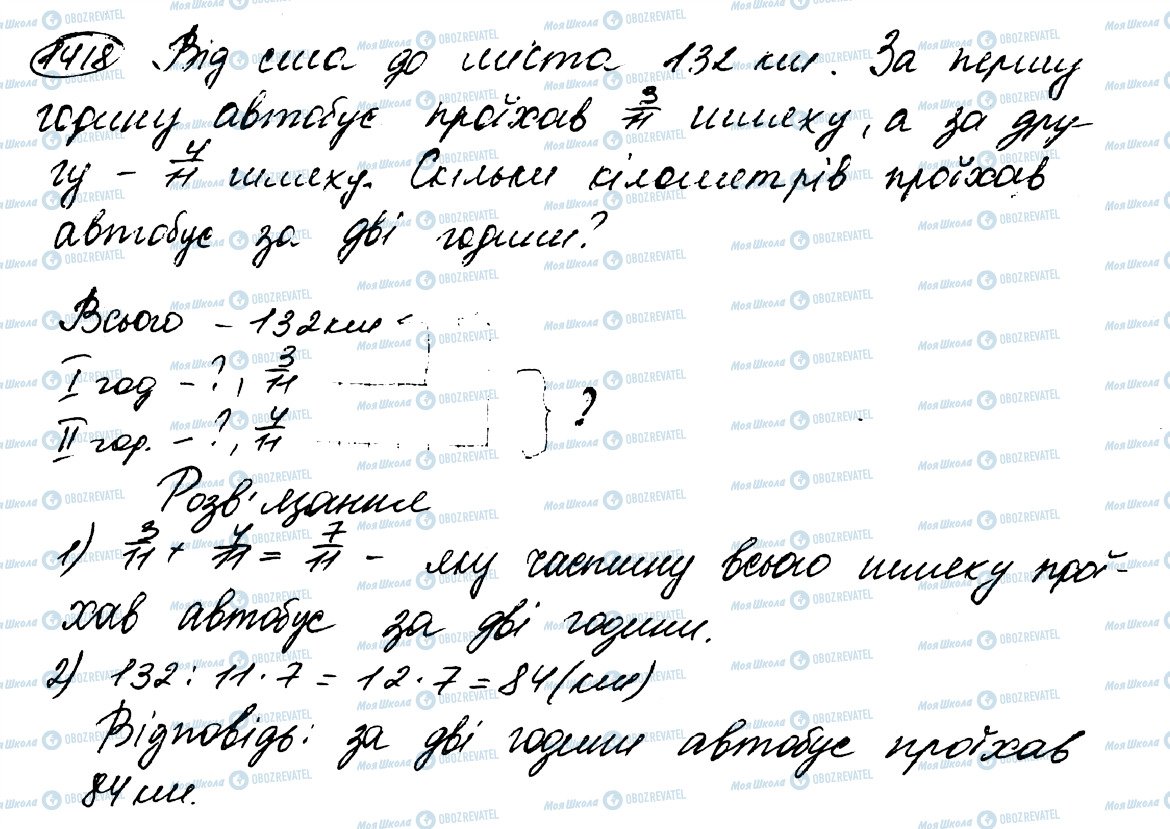 1418 Від села до міста 132 км. За першу
годину автобус проїхав 3/11 шляху, а за дру-
гу - 4/11 шляху. Скільки кілометрів проїхав
автобус за дві години?
Всього - 132 км
I год - ?, 3/11
II год. - ?, 4/11
} ?
Розв'язання
1) 3/11 + 4/11 = 7/11 - яку частину всього шляху прої-
хав автобус за дві години.
2) 132 : 11 · 7 = 12 · 7 = 84 (км)
Відповідь: за дві години автобус проїхав
84 км.